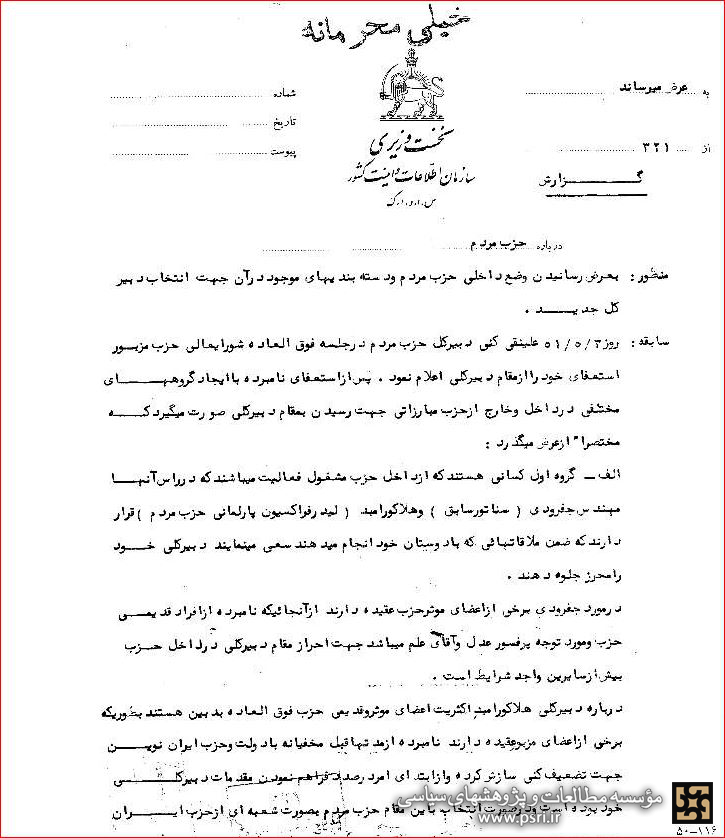 خیلی محرمانه
به عرض میرساند
شماره
تاریخ
از ۳۲۱
پیوست
نخست وزیری
سازمان اطلاعات و امنیت کشور
س.ا.و.ا.ک
گزارش
درباره حزب مردم
منظور: بعرض رسانیدن وضع داخلی حزب مردم ودسته بندیهای موجود درآن جهت انتخاب دبیر
کل جدید .
سابقه: روز ۵۱/۵/۳ علینقی کنی دبیرکل حزب مردم درجلسه فوق العاده شورایعالی حزب مزبور
استعفای خود را ازمقام دبیرکلی اعلام نمود . پس ازاستعفای نامبرده با ایجاد گروههای
مختلفی درداخل وخارج ازحزب مبارزاتی جهت رسیدن بمقام دبیرکلی صورت میگیرد که
مختصرا" ازعرض میگذرد :
الف - گروه اول کسانی هستند که ازداخل حزب مشغول فعالیت میباشند که درراس آنها
مهندس جفرودی ( سناتورسابق ) وهلاکورامبد ( لیدرفراکسیون پارلمانی حزب مردم ) قرار
دارند که ضمن ملاقاتهائی که بادوستان خود انجام میدهند سعی مینمایند دبیرکلی خود
رامحرز جلوه دهند .
درمورد جفرودی برخی ازاعضای موثرحزب عقیده دارند ازآنجائیکه نامبرده ازافراد قدیمی
حزب ومورد توجه پرفسور عدل وآقای علم میباشد جهت احراز مقام دبیرکلی درداخل حزب
بیش ازسایرین واجد شرایط است .
درباره دبیرکلی هلاکورامبد اکثریت اعضای موثروقدیمی حزب فوق العاده بدبین هستند بطوریکه
برخی ازاعضای مزبورعقیده دارند نامبرده ازمدتهاقبل مخفیانه بادولت وحزب ایران نوین
جهت تضعیف کنی سازش کرده وازابتدای امردرصدد فراهم نمودن مقدمات دبیرکلی
خود بوده است ودرصورت انتخاب باین مقام حزب مردم بصورت شعبه ای ازحزب ایران
مؤسسه مطالعات و پژوهشهای سیاسی
www.psri.ir
۵۰-۱۱۶